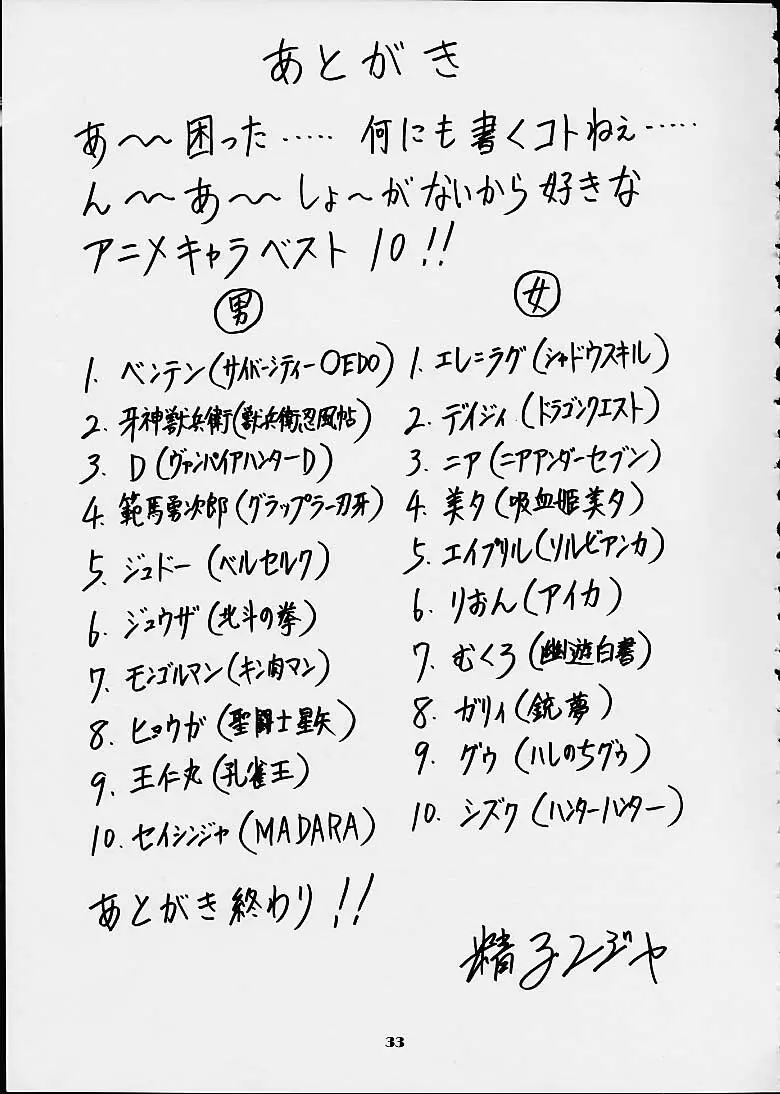 あとがき
あ～～困った…… 何にも書くコトねぇ……
ん～～あ～～しょ～がないから好きな
アニメキャラベスト10!!
男
1. ベンテン(サイバーシティーOEDO)
2. 牙神獣兵衛(獣兵衛忍風帖)
3. D(ヴァンパイアハンターD)
4. 範馬勇次郎(グラップラー刃牙)
5. ジュドー(ベルセルク)
6. ジュウザ(北斗の拳)
7. モンゴルマン(キン肉マン)
8. ヒョウガ(聖闘士星矢)
9. 王仁丸(孔雀王)
10. セイシンジャ(MADARA)
女
1. エレニラグ(シャドウスキル)
2. デイジィ(ドラゴンクエスト)
3. ニア(ニアアンダーセブン)
4. 美夕(吸血姫美夕)
5. エイプリル(ソルビアンカ)
6. りおん(アイカ)
7. むくろ(幽遊白書)
8. ガリィ(銃夢)
9. グゥ(ハレのちグゥ)
10. シズク(ハンターハンター)
あとがき終わり!!
精子ンジャ
33